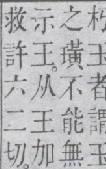 朽玉者謂玉
之璜不能無
示王。从王加
救許六二切。